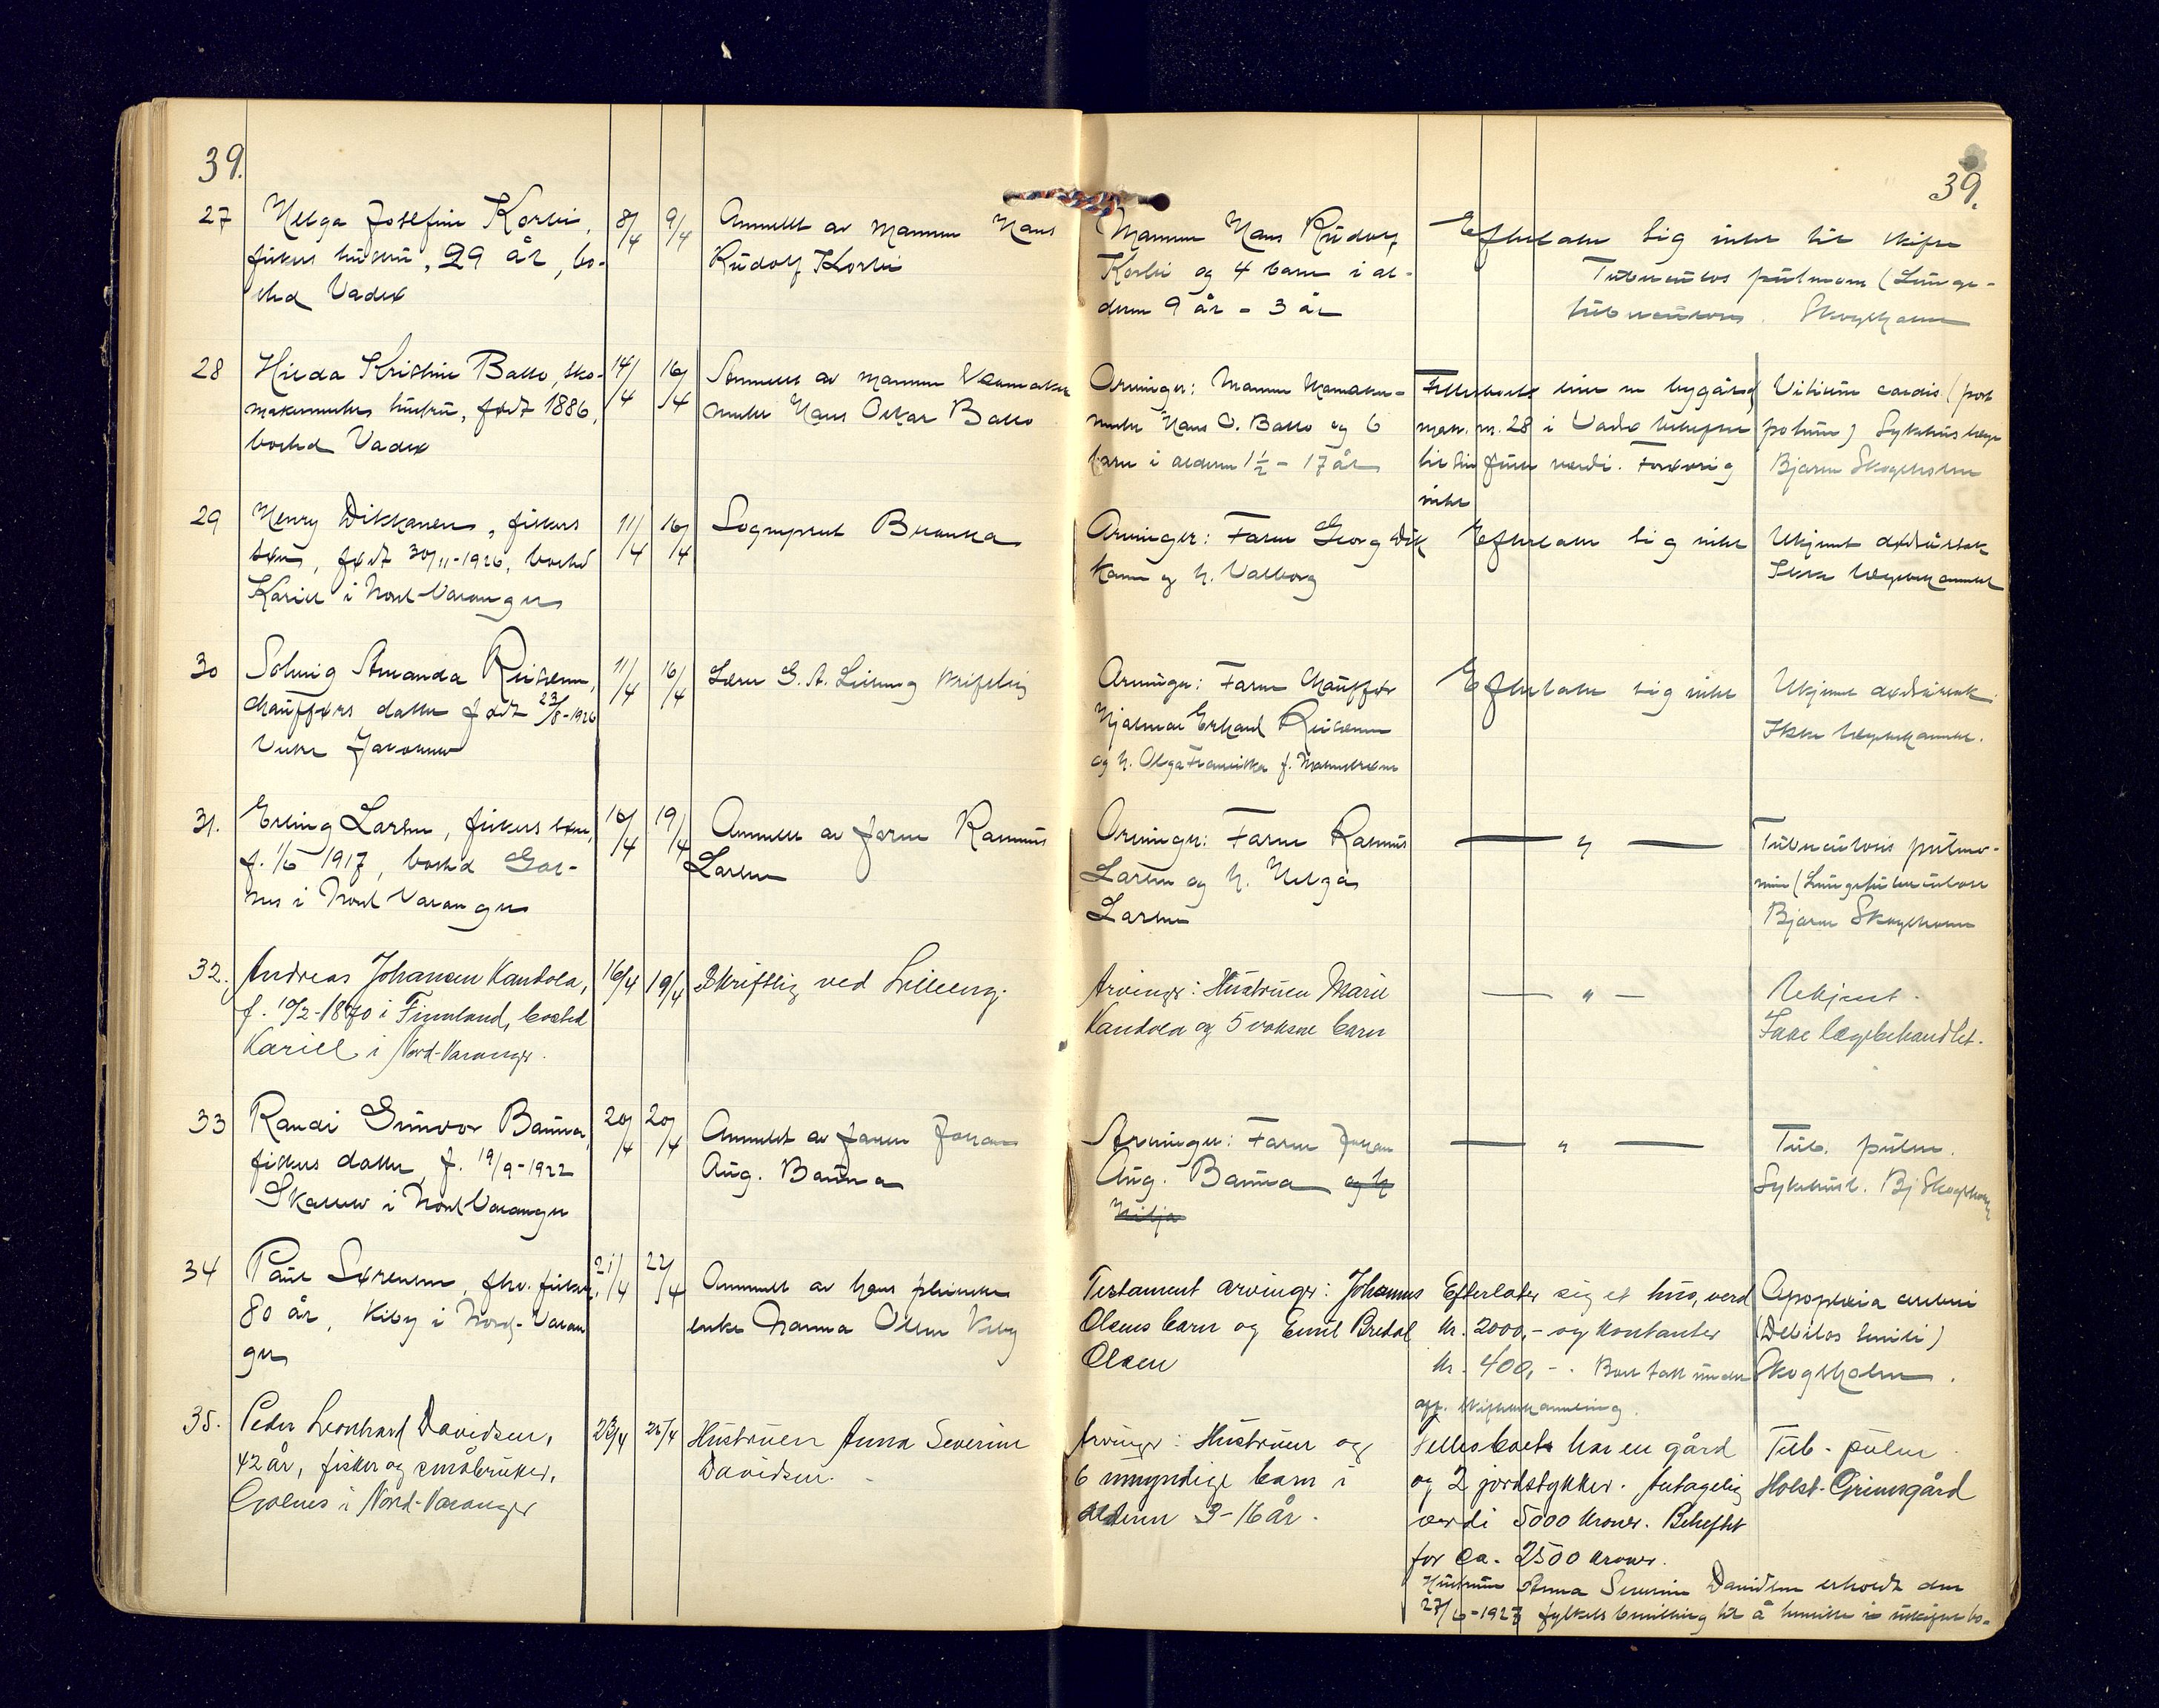 39.
39.
27
Helga Josefine Korbi,
fiskers hustru, 29 år, bo-
sted Vadsø
8/4
9/4
Anmeldt av mannen Hans
Rudolf Korbi
Mannen Hans Rudolf
Korbi og 4 barn i al-
deren 9 år - 3 år
Efterlater sig intet til skifte
Tuberculos pulmon (Lunge-
tuberculose. Skogsholm
28
Hilda Kristine Ballo, sko-
makermesters hustru, født 1886,
bosted Vadsø
14/4
16/4
Anmeldt av mannen skomaker
mester Hans Oskar Ballo
Arvinger: Mannen skomaker-
mester Hans O. Ballo og 6
barn i alderen 1½ - 17 år
Fellesboet eier en bygård
matr. nr. 28 i Vadsø beheftet
til sin fulle verdi. Forøvrig
intet
Vitium cordis (post
partum) Sykehuslæge
Bjarne Skogsholm
29
Henry Dikkanen, fiskers
sønn, født 30/11-1926, bosted
Kariel i Nord-Varanger
11/4
16/4
Sogneprest
Arvinger: Faren Georg Dik
kanen og h. Valborg
Efterlater sig intet
Ukjent dødsårsak
Ikke lægebehandlet
30
Solveig Amanda
chaufførs datter født 23/8-1926
Vestre Jakobselv
11/4
16/4
Lærer G. A. Lilleeng skriftlig
Arvinger: Faren chauffør
Hjalmar Erhard
og h. Olga Franciska f.
Efterlater sig intet
Ukjent dødsårsak.
Ikke lægebehandlet.
31.
Erling Larsen, fiskers sønn,
f. 1/5 1917, bosted Gol-
nes i Nord-Varanger
16/4
19/4
Anmeldt av faren Rasmus
Larsen
Arvinger: Faren Rasmus
Larsen og h. Helga
Larsen
— „ —
Tuberculosis pulmo-
num (Lungetuberculose
Bjarne Skogsholm
32.
Andreas Johansen Kandola,
f. 10/2-1870 i Finnland, bosted
Kariel i Nord-Varanger.
16/4
19/4
Skriftlig ved Lilleeng.
Arvinger: Hustruen Marie
Kandola og 5 voksne barn
— „ —
Ukjent.
Ikke lægebehandlet.
33
Randi Gunvor Banna,
fiskers datter, f. 19/9-1922
Skallelv i Nord-Varanger
20/4
20/4
Anmeldt av faren Johan
Aug. Banna
Arvinger: Faren Johan
Aug. Banna og h
Hilja
— „ —
Tub. pulm.
Sykehusl. Bj Skogsholm
34
Paul Sørensen, fhv. fisker,
80 år, Kiby i Nord-Varan
ger
21/4
22/4
Anmeldt av hans pleierske
enke Hanna Olsen Kiby
Testament arvinger: Johannes
Olsens barn og Emil Bredal
Olsen
Efterlater sig et hus, verd
kr. 2000,- og kontanter
kr. 400,-. Boet tatt under
off. skiftebehandling.
Apoplexia cerebri
(Debilitas senilis)
Skogsholm.
35.
Peder Leonhard Davidsen,
42 år, fisker og småbruker,
Golnes i Nord-Varanger
23/4
25/4
Hustruen Anna Severine
Davidsen.
Arvinger: Hustruen og
6 umyndige barn i
alderen 3-16 år.
Fellesboet har en gård
og 2 jordstykker. Antagelig
verdi 5000 kroner. Beheftet
for ca. 2500 kroner.
Hustruen Anna Severine Davidsen erholdt den
27/6-1927 fylkets bevilling til å hensitte i uskiftet bo.
Tub. pulm.
Holst-Grimsgård